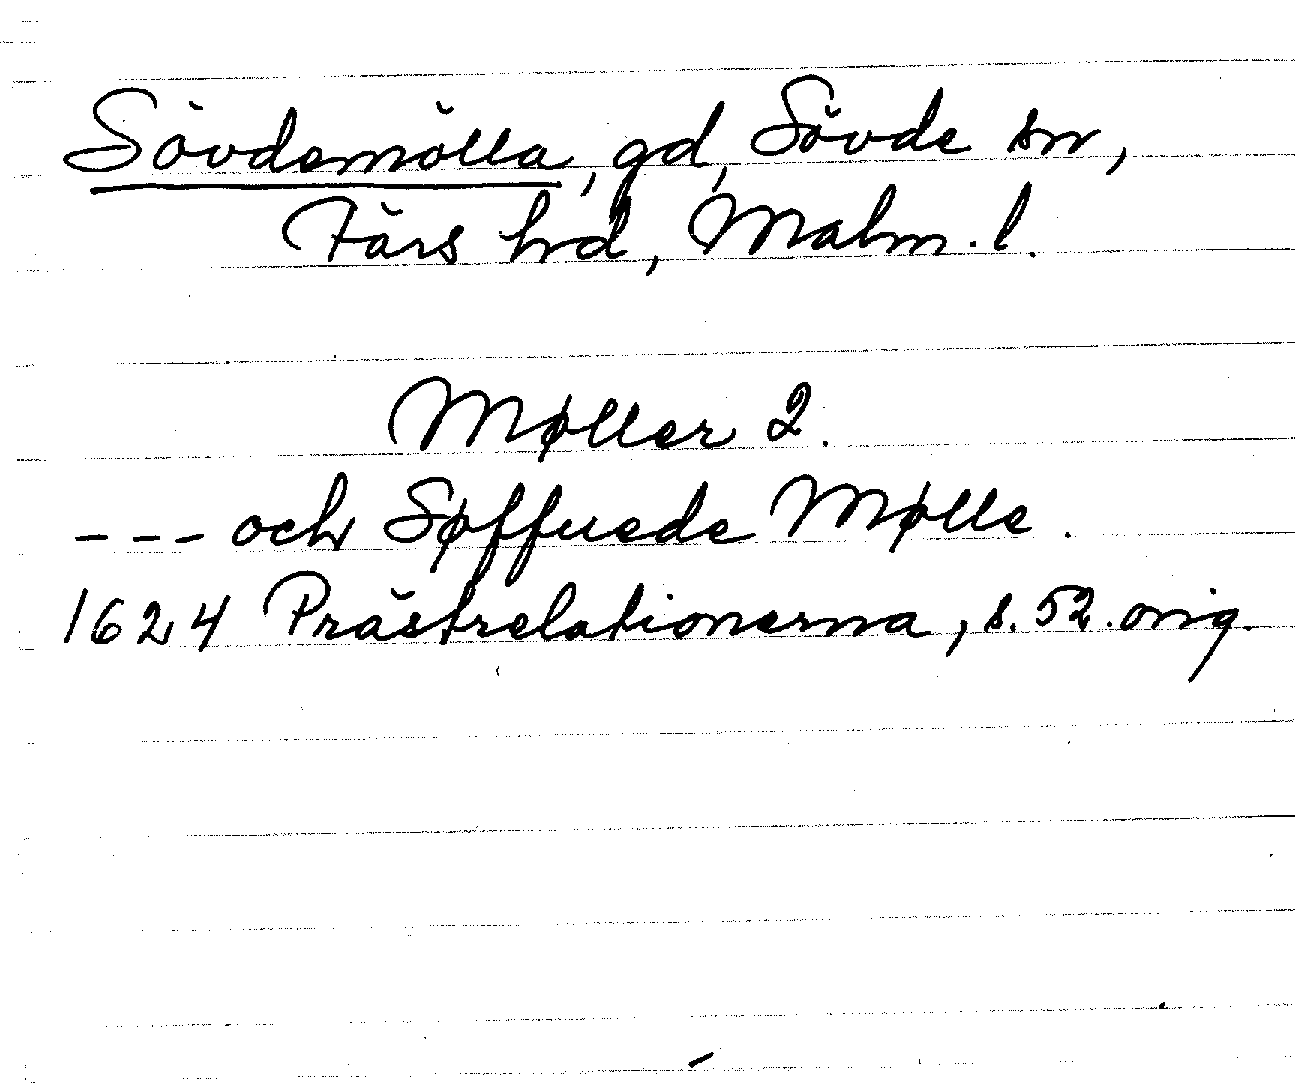 Sövdemölla, gd, Sövde sn,
Färs hd, Malm. l.
Møller 2.
--- och Søffuede Mølle.
1624 Prästrelationerna, s. 52. orig.